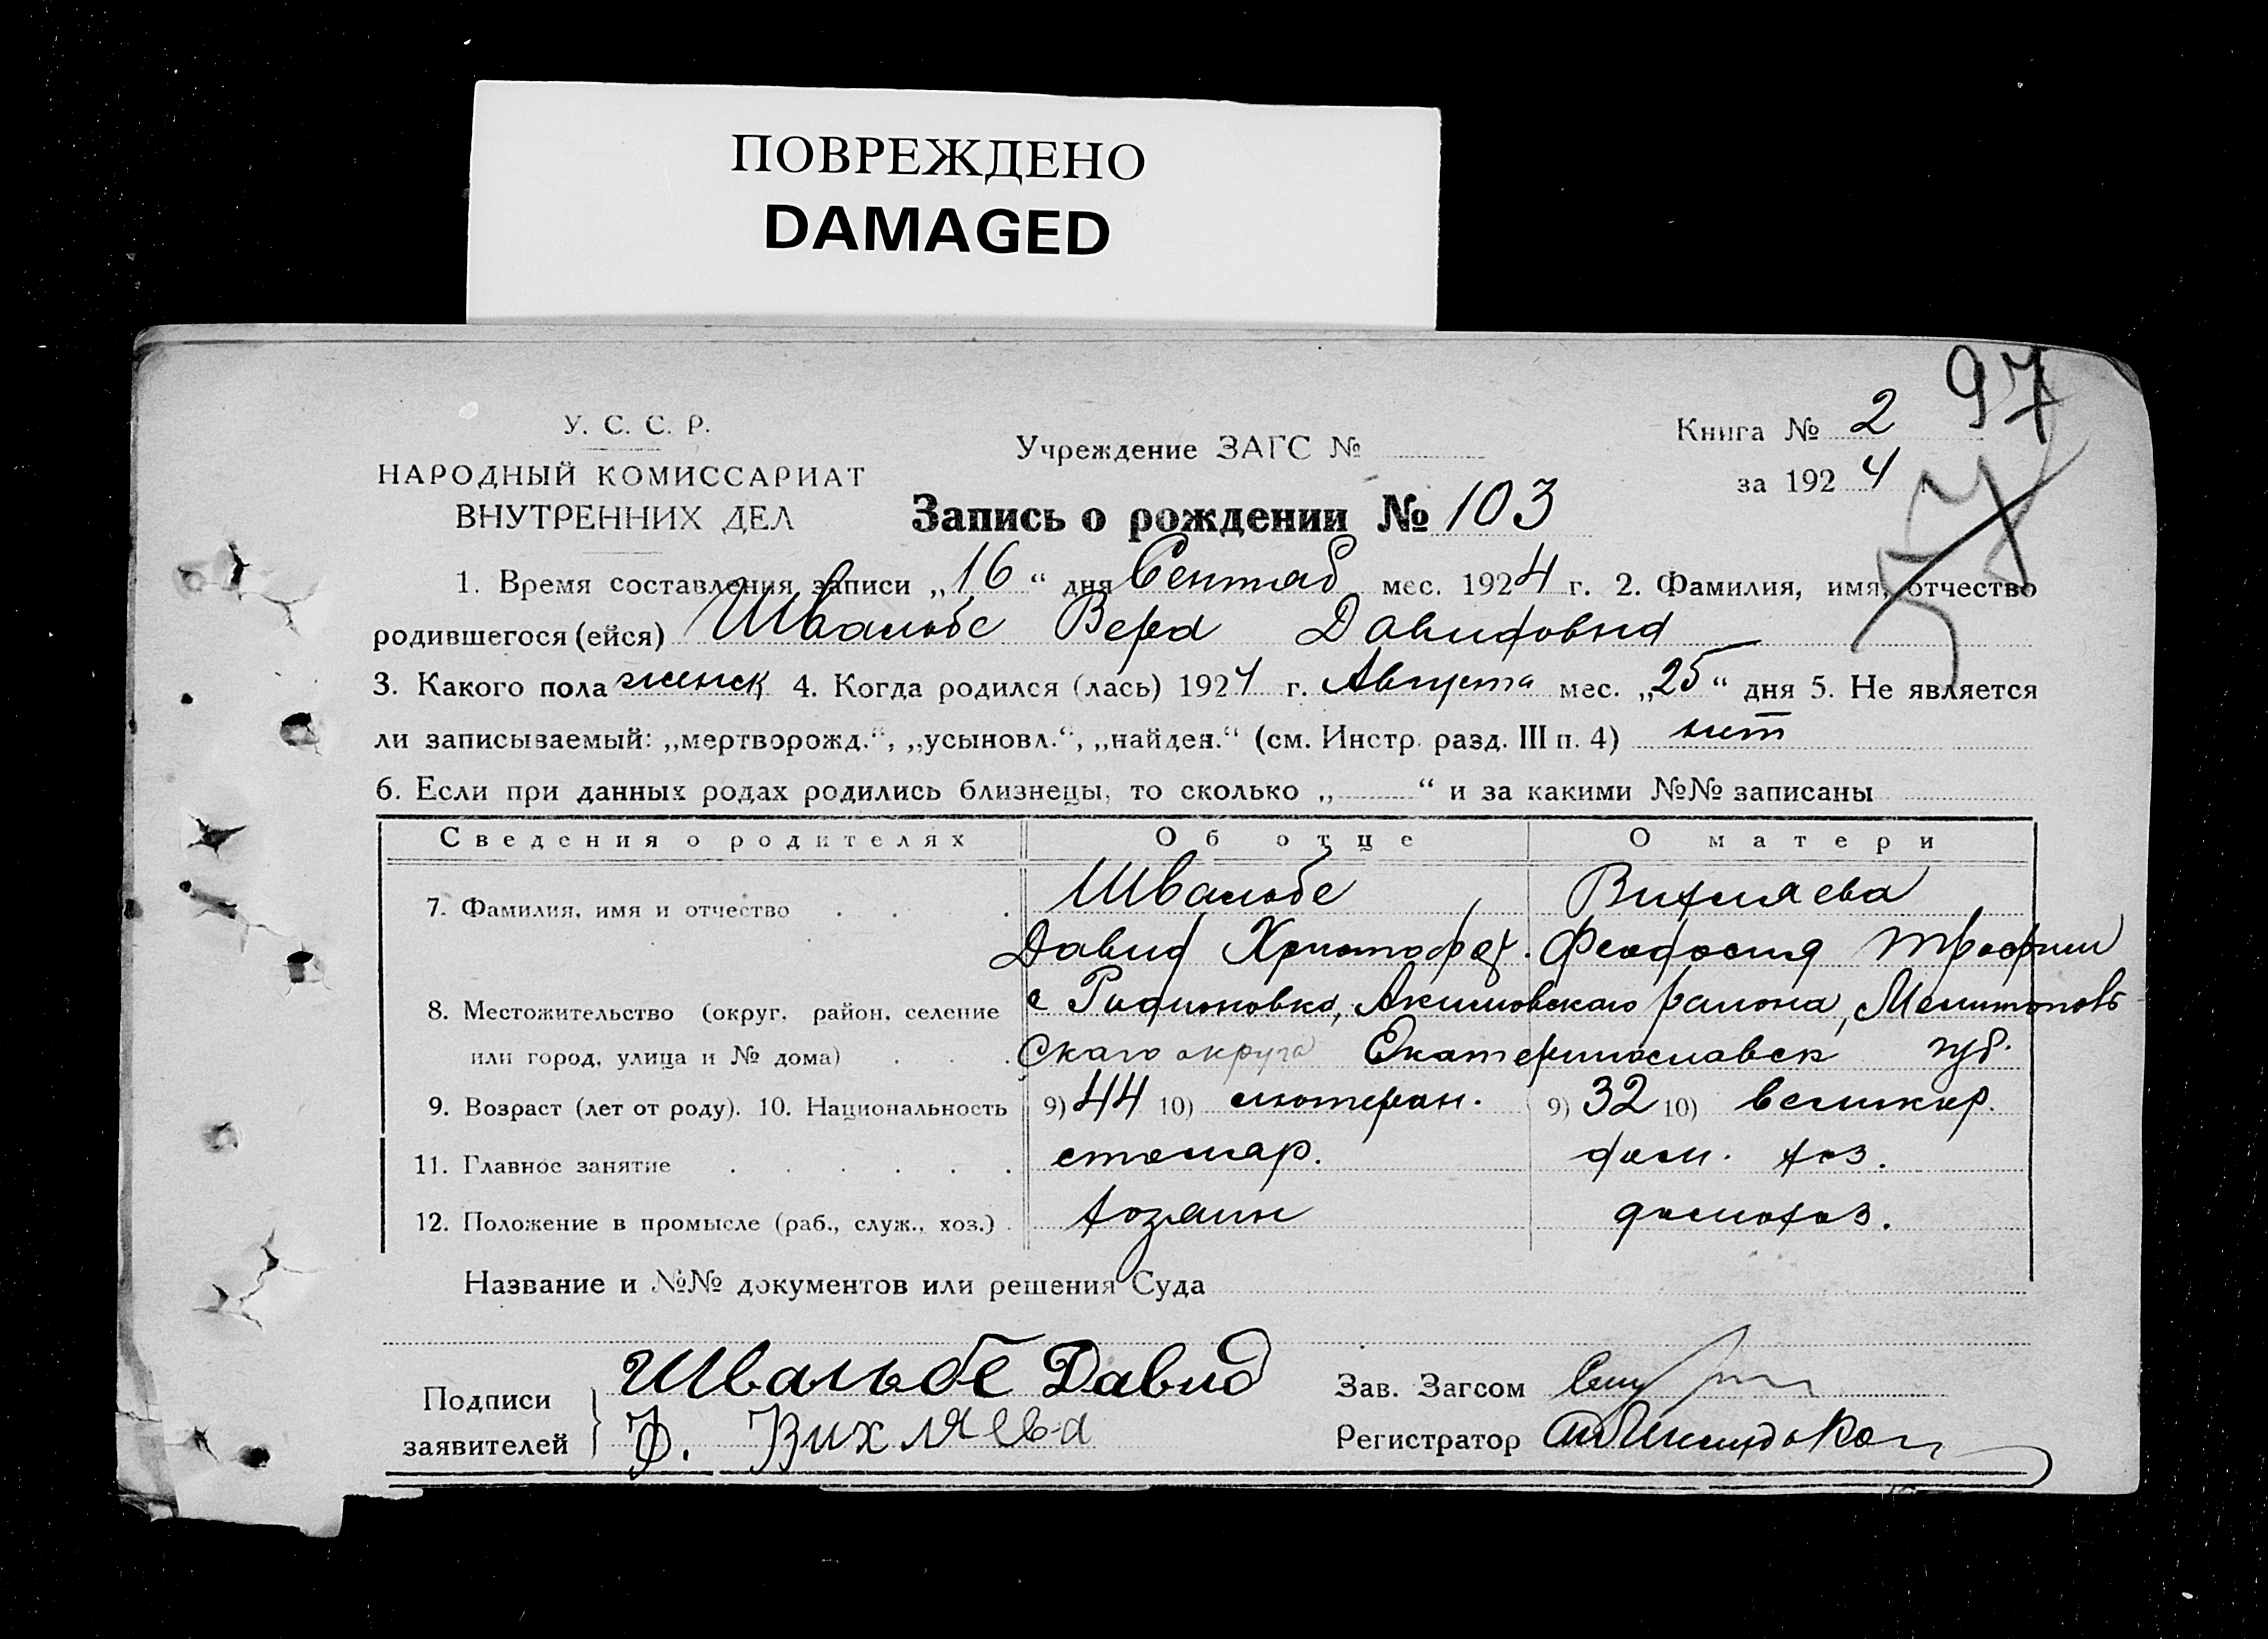 ПОВРЕЖДЕНО
DAMAGED
97
У. С. С. Р.
НАРОДНЫЙ КОМИССАРИАТ
ВНУТРЕННИХ ДЕЛ
Учреждение ЗАГС №
Книга № 2
за 1924
Запись о рождении № 103
1. Время составления записи „16“ дня Сентяб мес. 1924 г. 2. Фамилия, имя, отчество
родившегося (ейся) Швальбе Вера Давидовна
3. Какого пола женск 4. Когда родился (лась) 1924 г. Августа мес. „25“ дня 5. Не является
ли записываемый: „мертворожд.“, „усыновл.“, „найден.“ (см. Инстр. разд. III п. 4) нет
6. Если при данных родах родились близнецы, то сколько „ “ и за какими №№ записаны
Сведения о родителях Об отце О матери
7. Фамилия, имя и отчество Швальбе Вихляева
Давид Христофор. Феодосия Трофим
8. Местожительство (округ, район, селение с Родионовка, Акимовскаго района, Мелитополь
или город, улица и № дома) скаго округа Екатеринославск губ.
9. Возраст (лет от роду). 10. Национальность 9) 44 10) лютеран. 9) 32 10) великор.
11. Главное занятие столяр. дом. хоз.
12. Положение в промысле (раб., служ., хоз.) хозяин домохоз.
Название и №№ документов или решения Суда
Подписи заявителей Швальбе Давид
Ф. Вихляева
Зав. Загсом
Регистратор